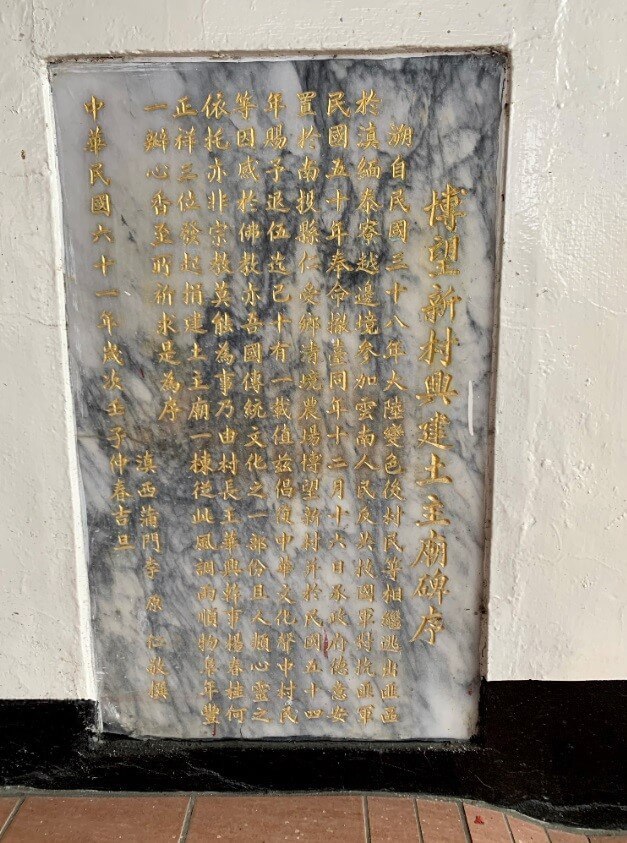 博望新村興建土主廟碑序
溯自民國三十八年大陸變色後村民等相繼逃出匪區
於滇緬泰寮越邊境參加雲南人民反共救國軍對抗匪軍
民國五十年奉命撤臺同年十二月十六日承政府德意安
置於南投縣仁愛鄉清境農場博望新村并於民國五十四
年賜予退伍迄已十有一載值兹倡復中華文化聲中村民
等因感於佛教亦吾國傳統文化之一部份且人類心靈之
依托亦非宗教莫能為事乃由村長王華興幹事楊春桂何
正祥三位發起捐建土主廟一棟從此風調雨順物阜年豐
一瓣心香至所祈求是為序
滇西蒲門李原仁敬撰
中華民國六十一年歲次壬子仲春吉旦